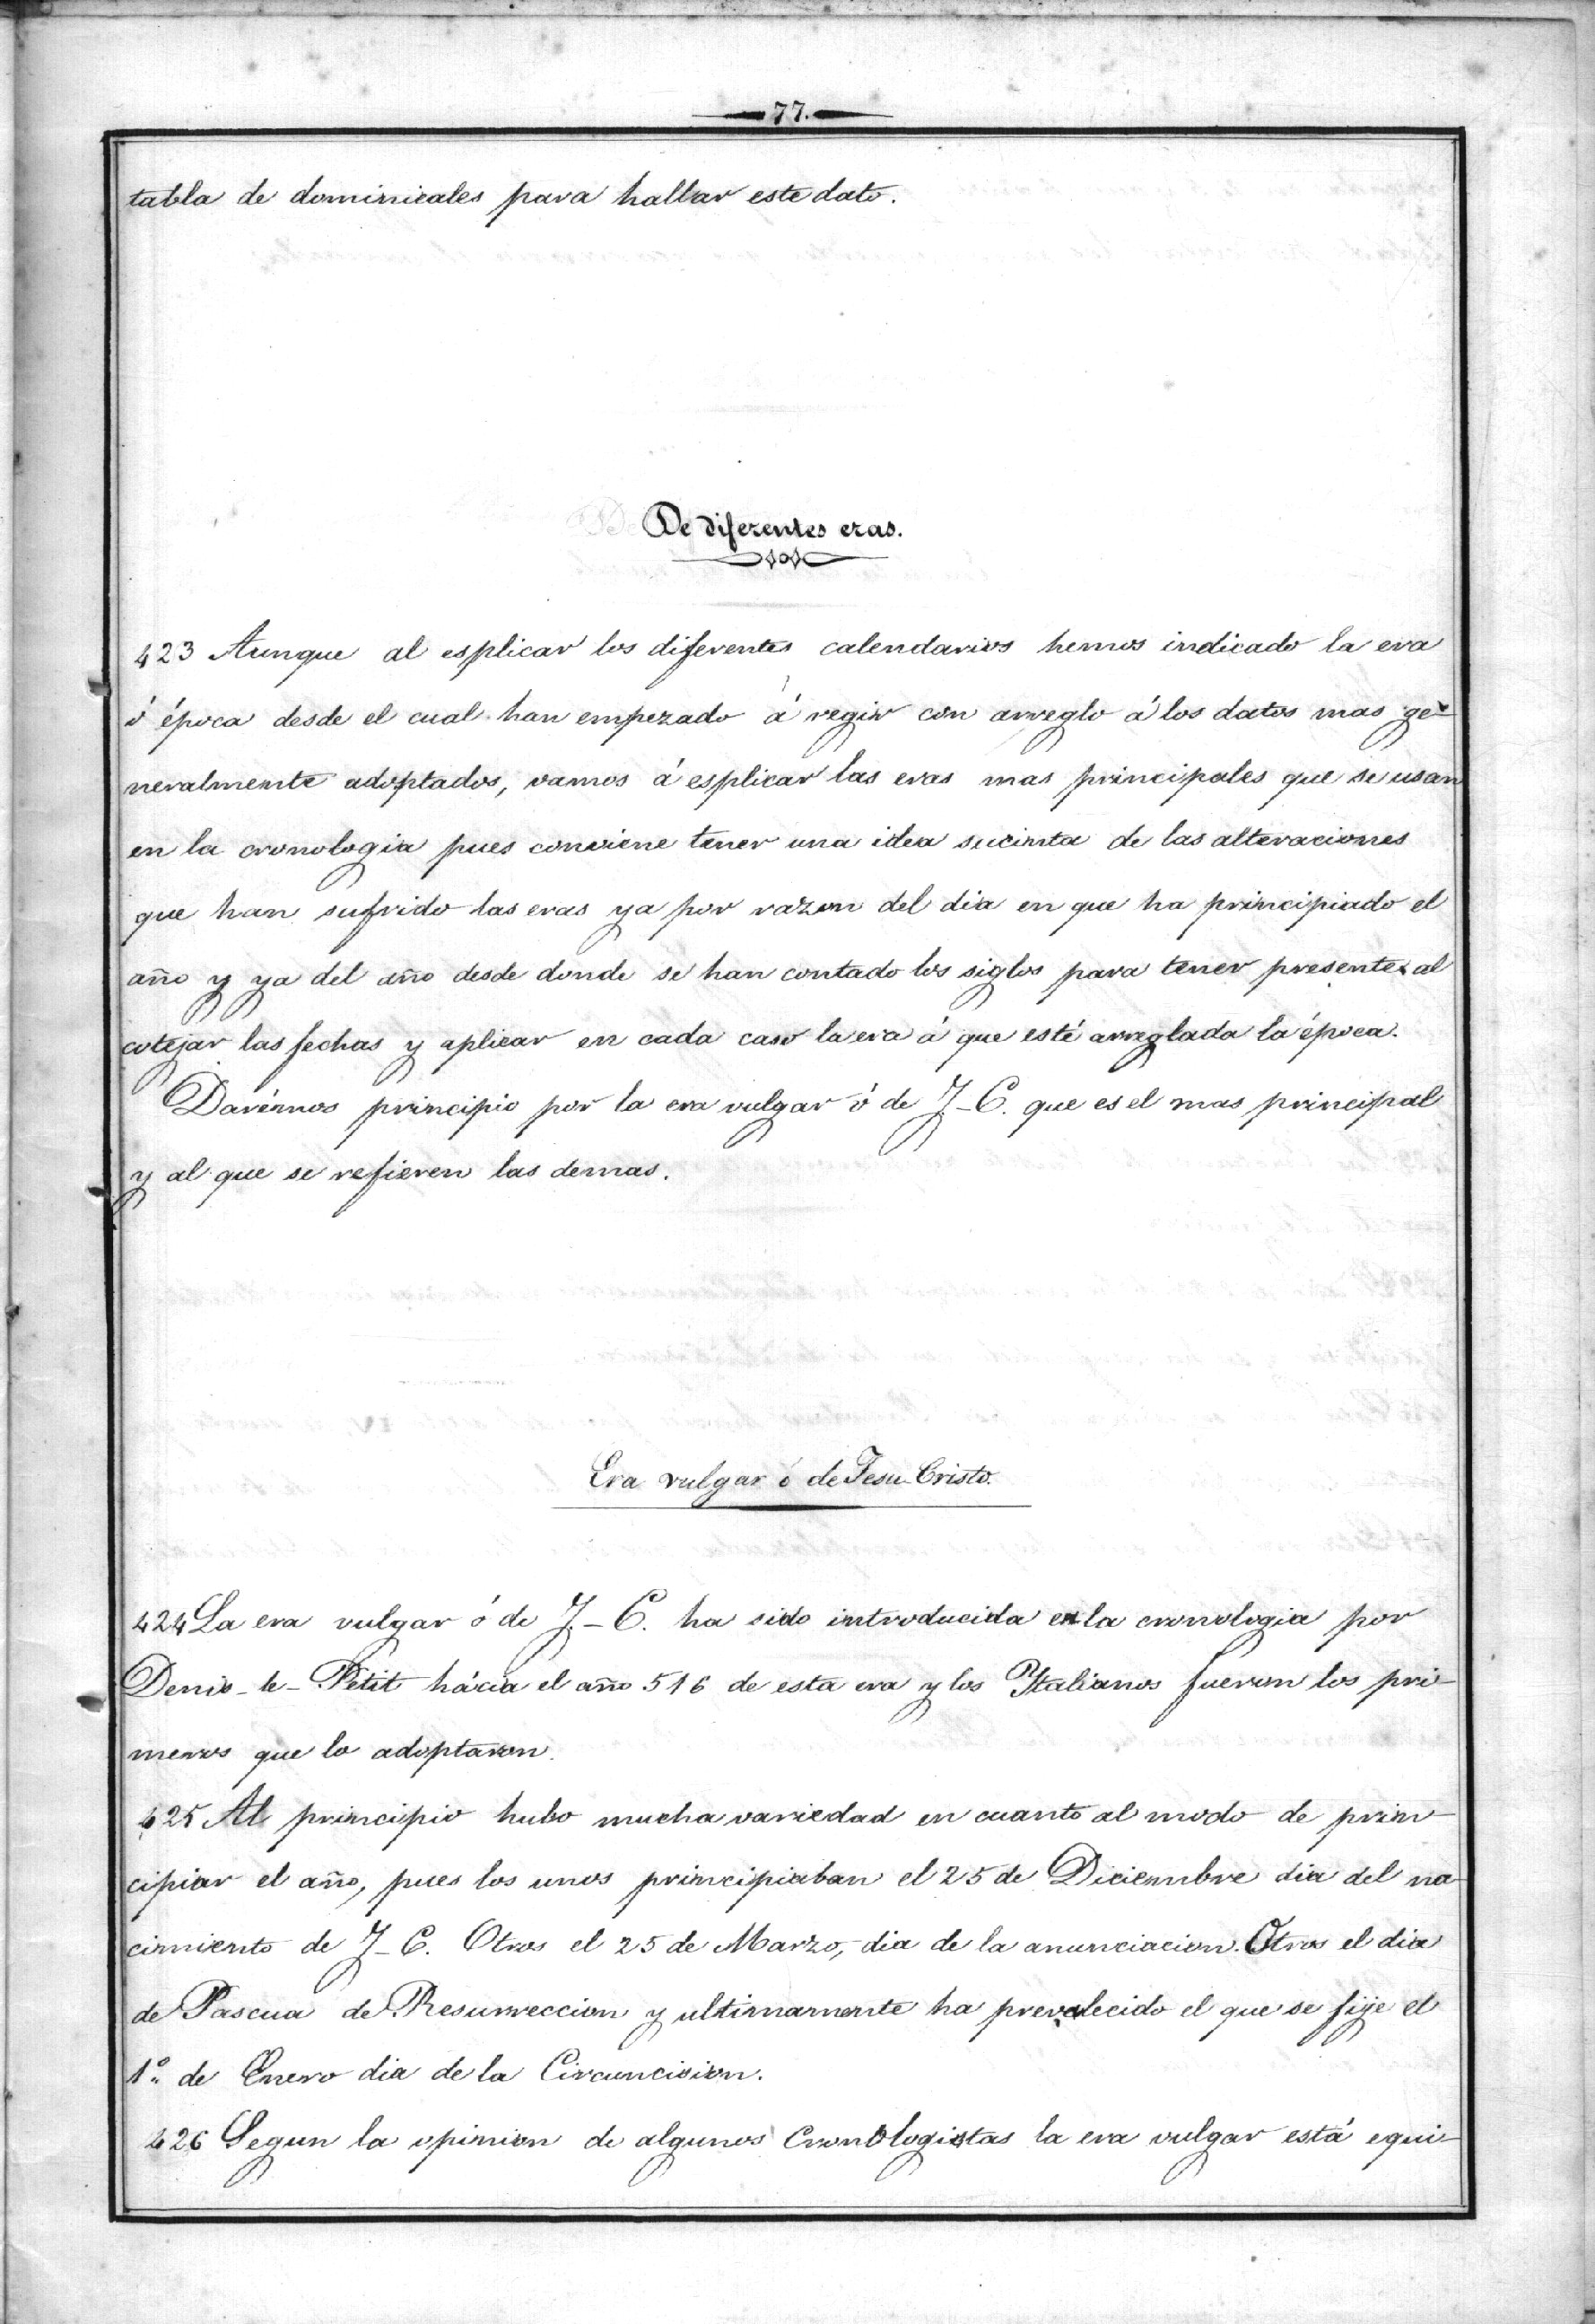 77.
tabla de dominicales para hallar este dato.
De diferentes eras.
423 Aunque al esplicar los diferentes calendarios hemos indicado la era
ó época desde el cual han empezado á regir con arreglo á los datos mas ge-
neralmente adoptados, vamos á esplicar las eras mas principales que se usan
en la cronologia pues conviene tener una idea sucinta de las alteraciones
que han sufrido las eras ya por razon del dia en que ha principiado el
año y ya del año desde donde se han contado los siglos para tener presente al
cotejar las fechas y aplicar en cada caso la era á que esté arreglada la época.
Darémos principio por la era vulgar ó de J-C. que es el mas principal
y al que se refieren las demas.
Era vulgar ó de Jesu-Cristo.
424 La era vulgar ó de J.-C. ha sido introducida en la cronologia por
Denis-le-Petit hácia el año 516 de esta era y los Italianos fueron los pri-
meros que lo adoptaron.
425 Al principio hubo mucha variedad en cuanto al modo de prin-
cipiar el año, pues los unos principiaban el 25 de Diciembre dia del na-
cimiento de J-C. Otros el 25 de Marzo, dia de la anunciacion. Otros el dia
de Pascua de Resurreccion y ultimamente ha prevalecido el que se fije el
1º de Enero dia de la Circuncision.
426 Segun la opinion de algunos Cronologistas la era vulgar está equi-